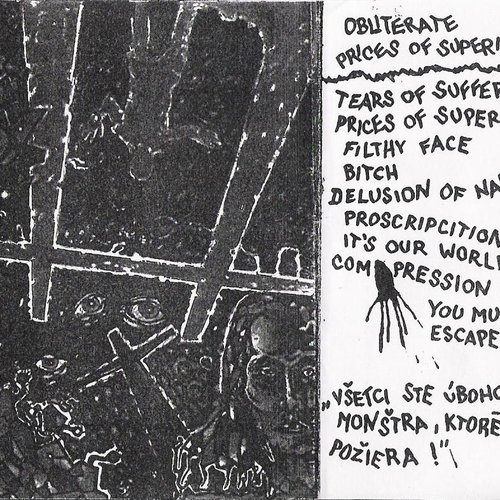 OBLITERATE
PRICES OF SUPERI
TEARS OF SUFFER
PRICES OF SUPER
FILTHY FACE
BITCH
DELUSION OF NA
PROSCRIPCITION
IT'S OUR WORL
COMPRESSION
YOU MU
ESCAPE
„VŠETCI STE ÚBOHÉ
MONŠTRA, KTORÉ
POŽIERA!"